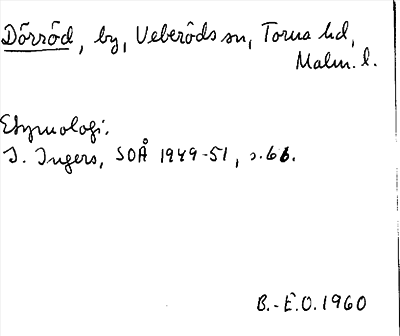 Dörröd, by, Veberöds sn, Torna hd,
Malm. l.
Etymologi.
I. Ingers, SOÅ 1949-51, s. 66.
B.-E.O. 1960